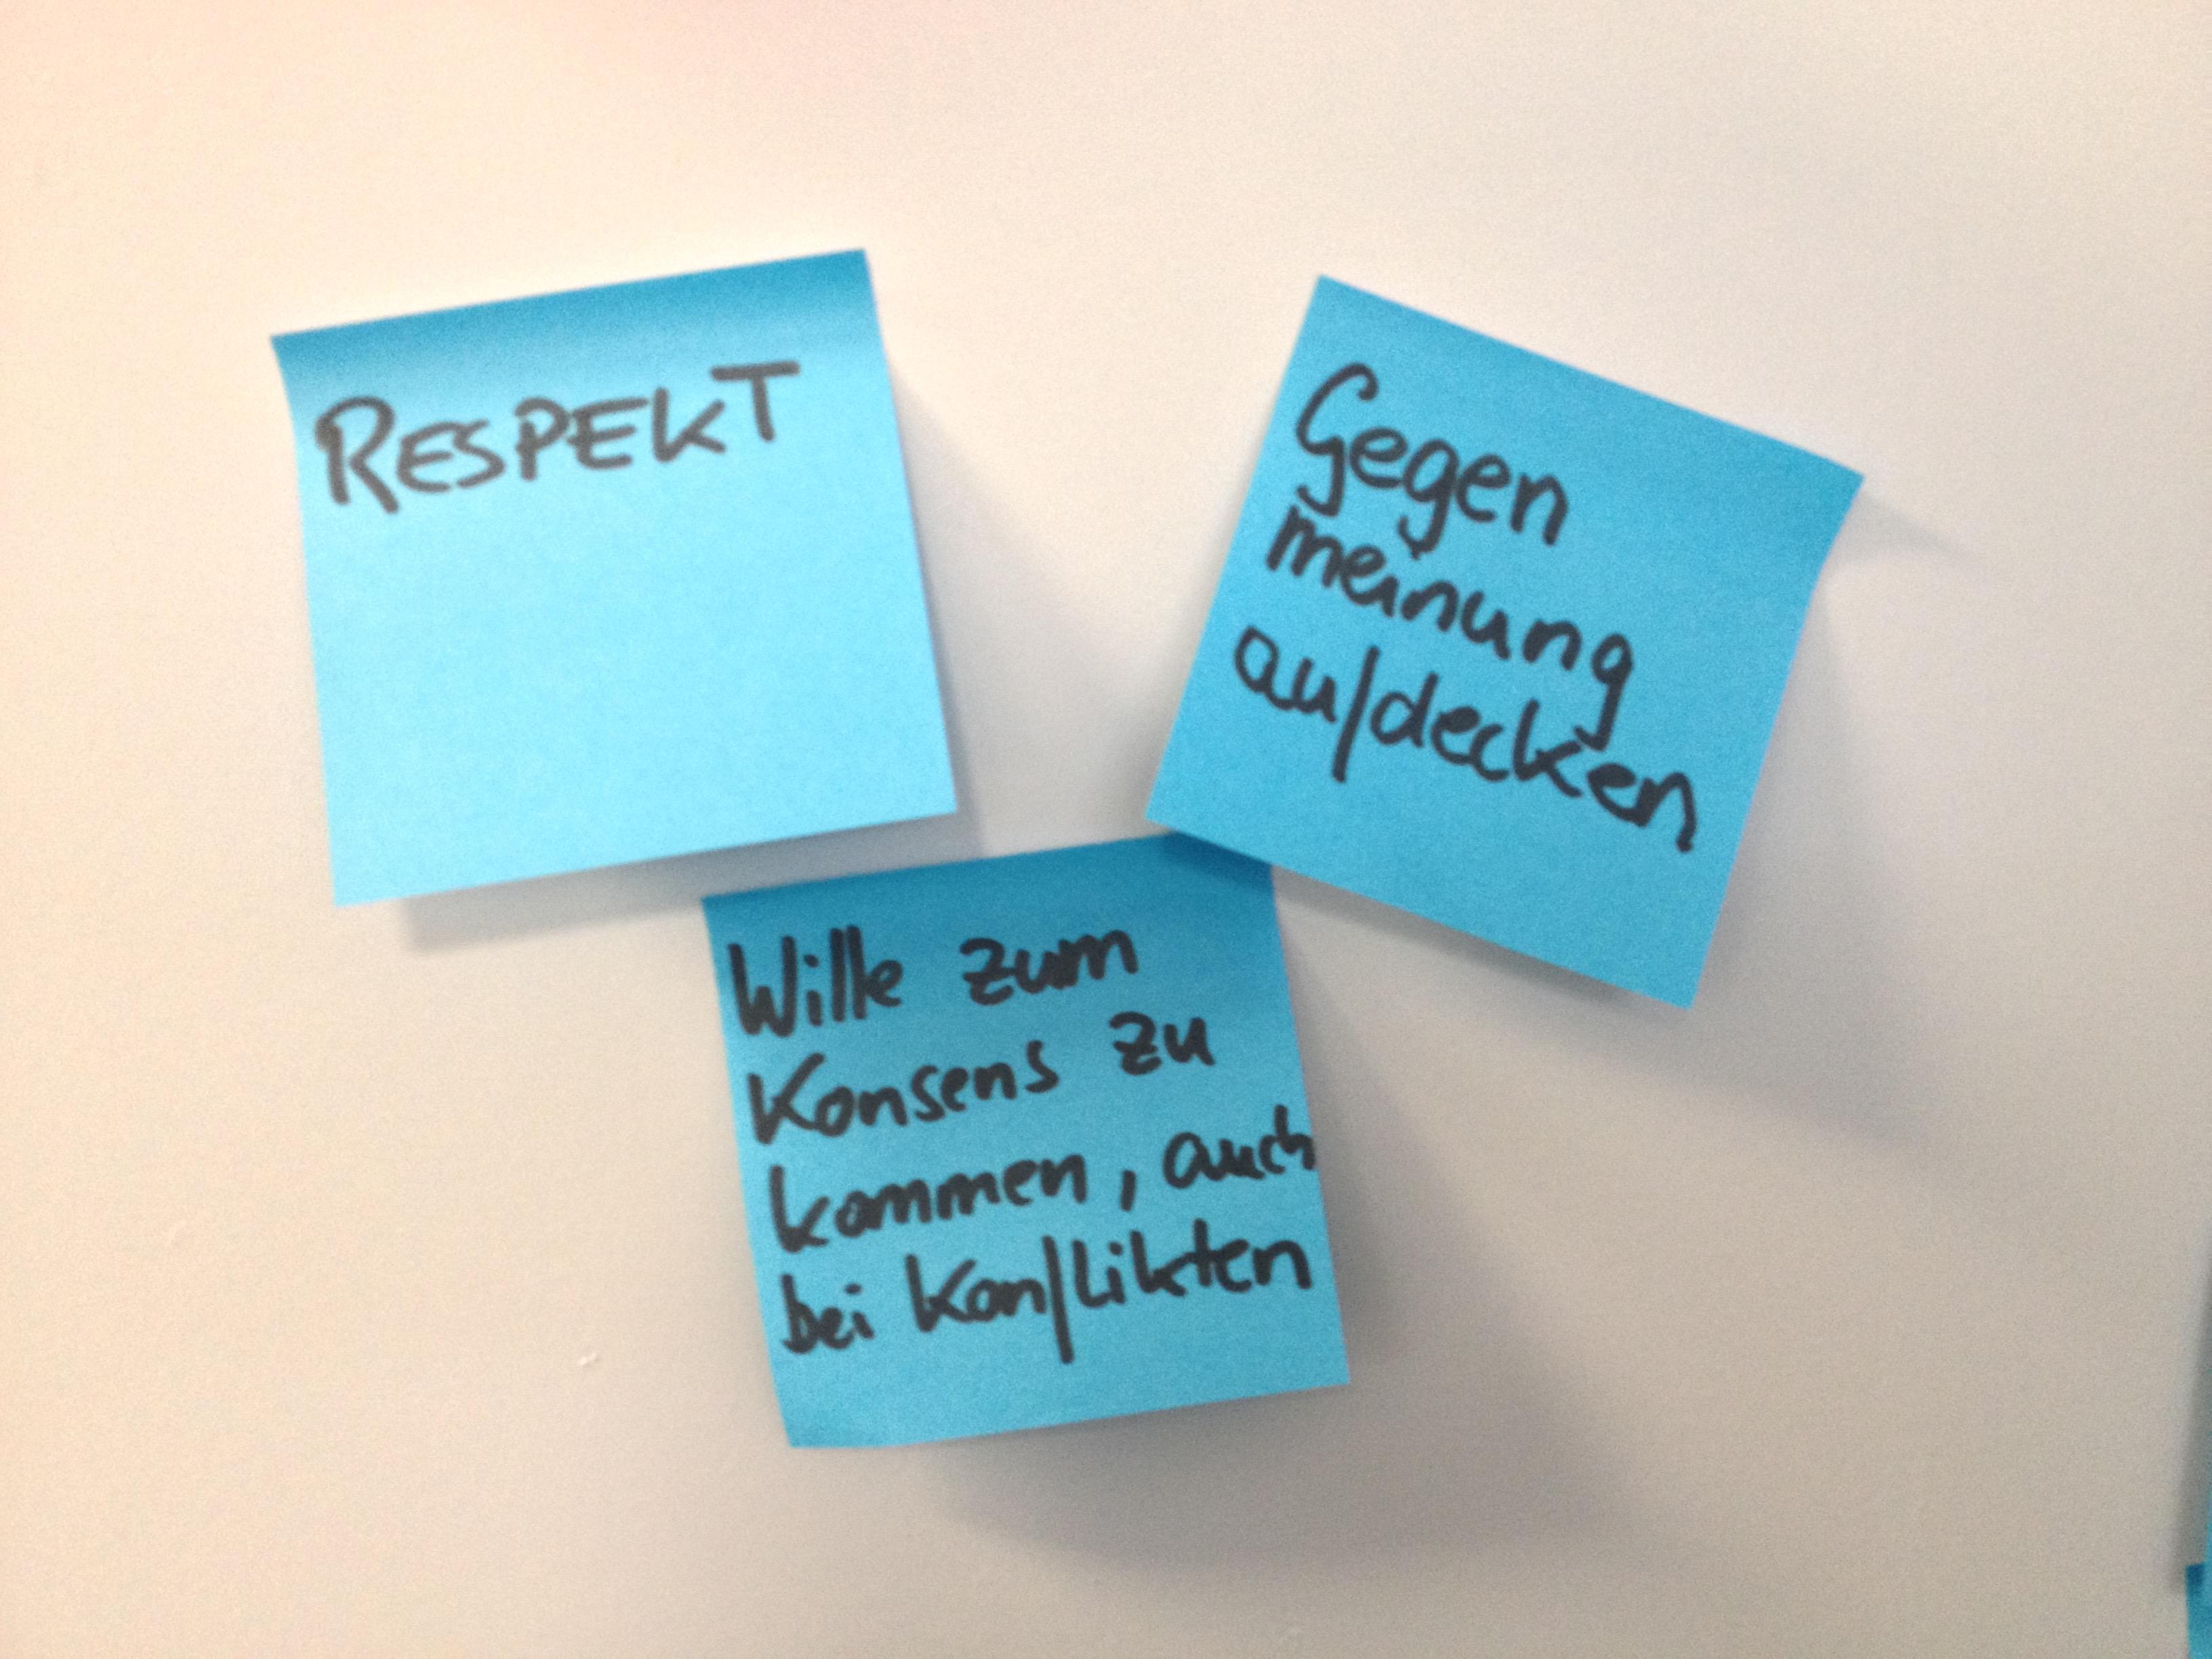 RESPEKT
Gegen
meinung
aufdecken
Wille zum
Konsens zu
kommen, auch
bei Konflikten